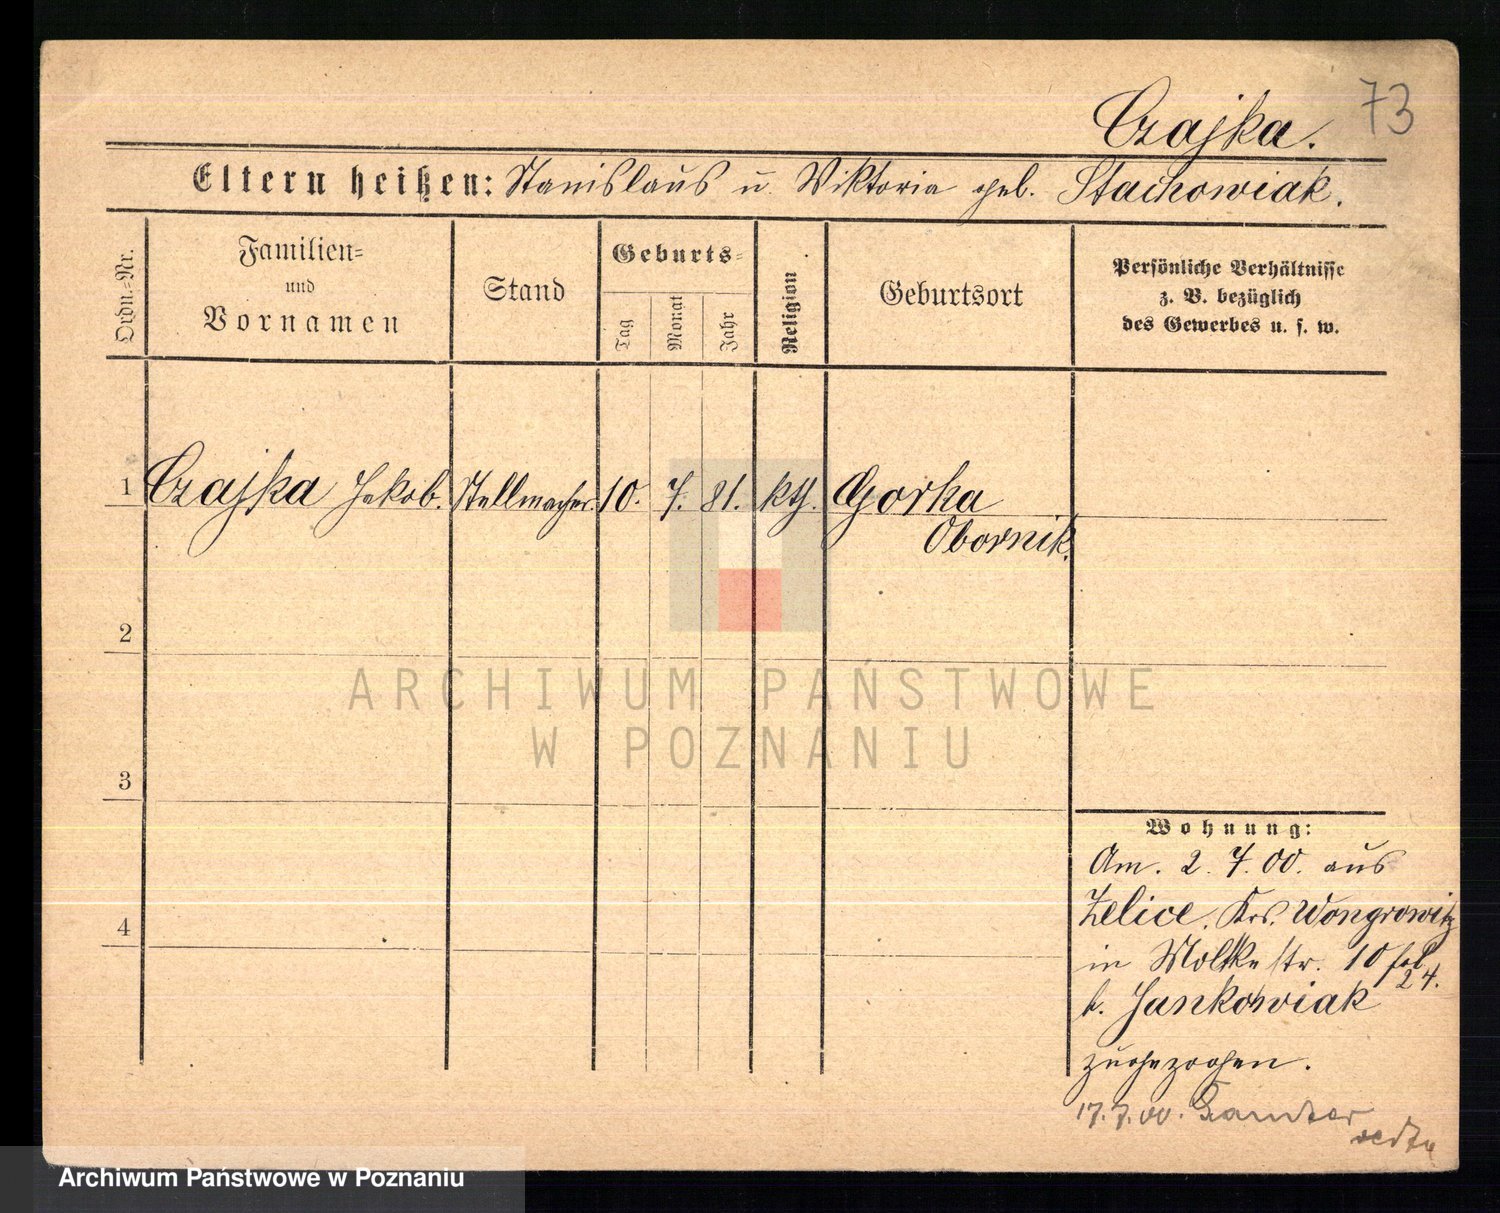 73
Czajka.
Eltern heißen: Stanislaus u. Viktoria geb. Stachowiak.
Ordn.=Nr.
Familien=
und
Vornamen
Stand
Geburts=
Tag
Monat
Jahr
Religion
Geburtsort
Persönliche Verhältnisse
z. B. bezüglich
des Gewerbes u. s. w.
1 Czajka Jakob. Stellmacher. 10. 7. 81. kth. Gorka
Obornik.
2
3
4
Wohnung:
Am. 2. 7. 00. aus
Zelice. Krs. Wongrowitz
in Moltkestr. 10
24.
b. Jankowiak
zugezogen.
17. 7. 00. Samter
ARCHIWUM PAŃSTWOWE
W POZNANIU
Archiwum Państwowe w Poznaniu